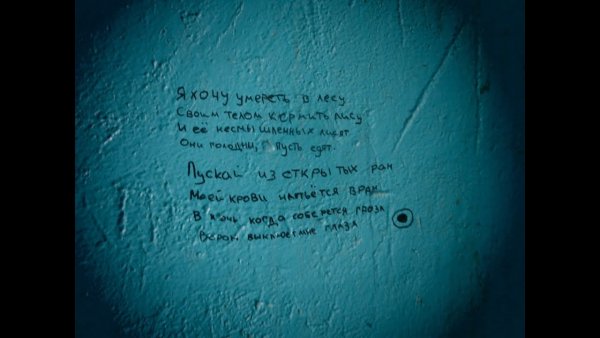 Я хочу умереть в лесу
Своим телом кормить лису
И её несмышленных лисят
Они голодны, пусть едят.
Пускай из открытых ран
Моей крови напьётся вран
В ночь когда соберётся гроза
Ворон выклюет мне глаза